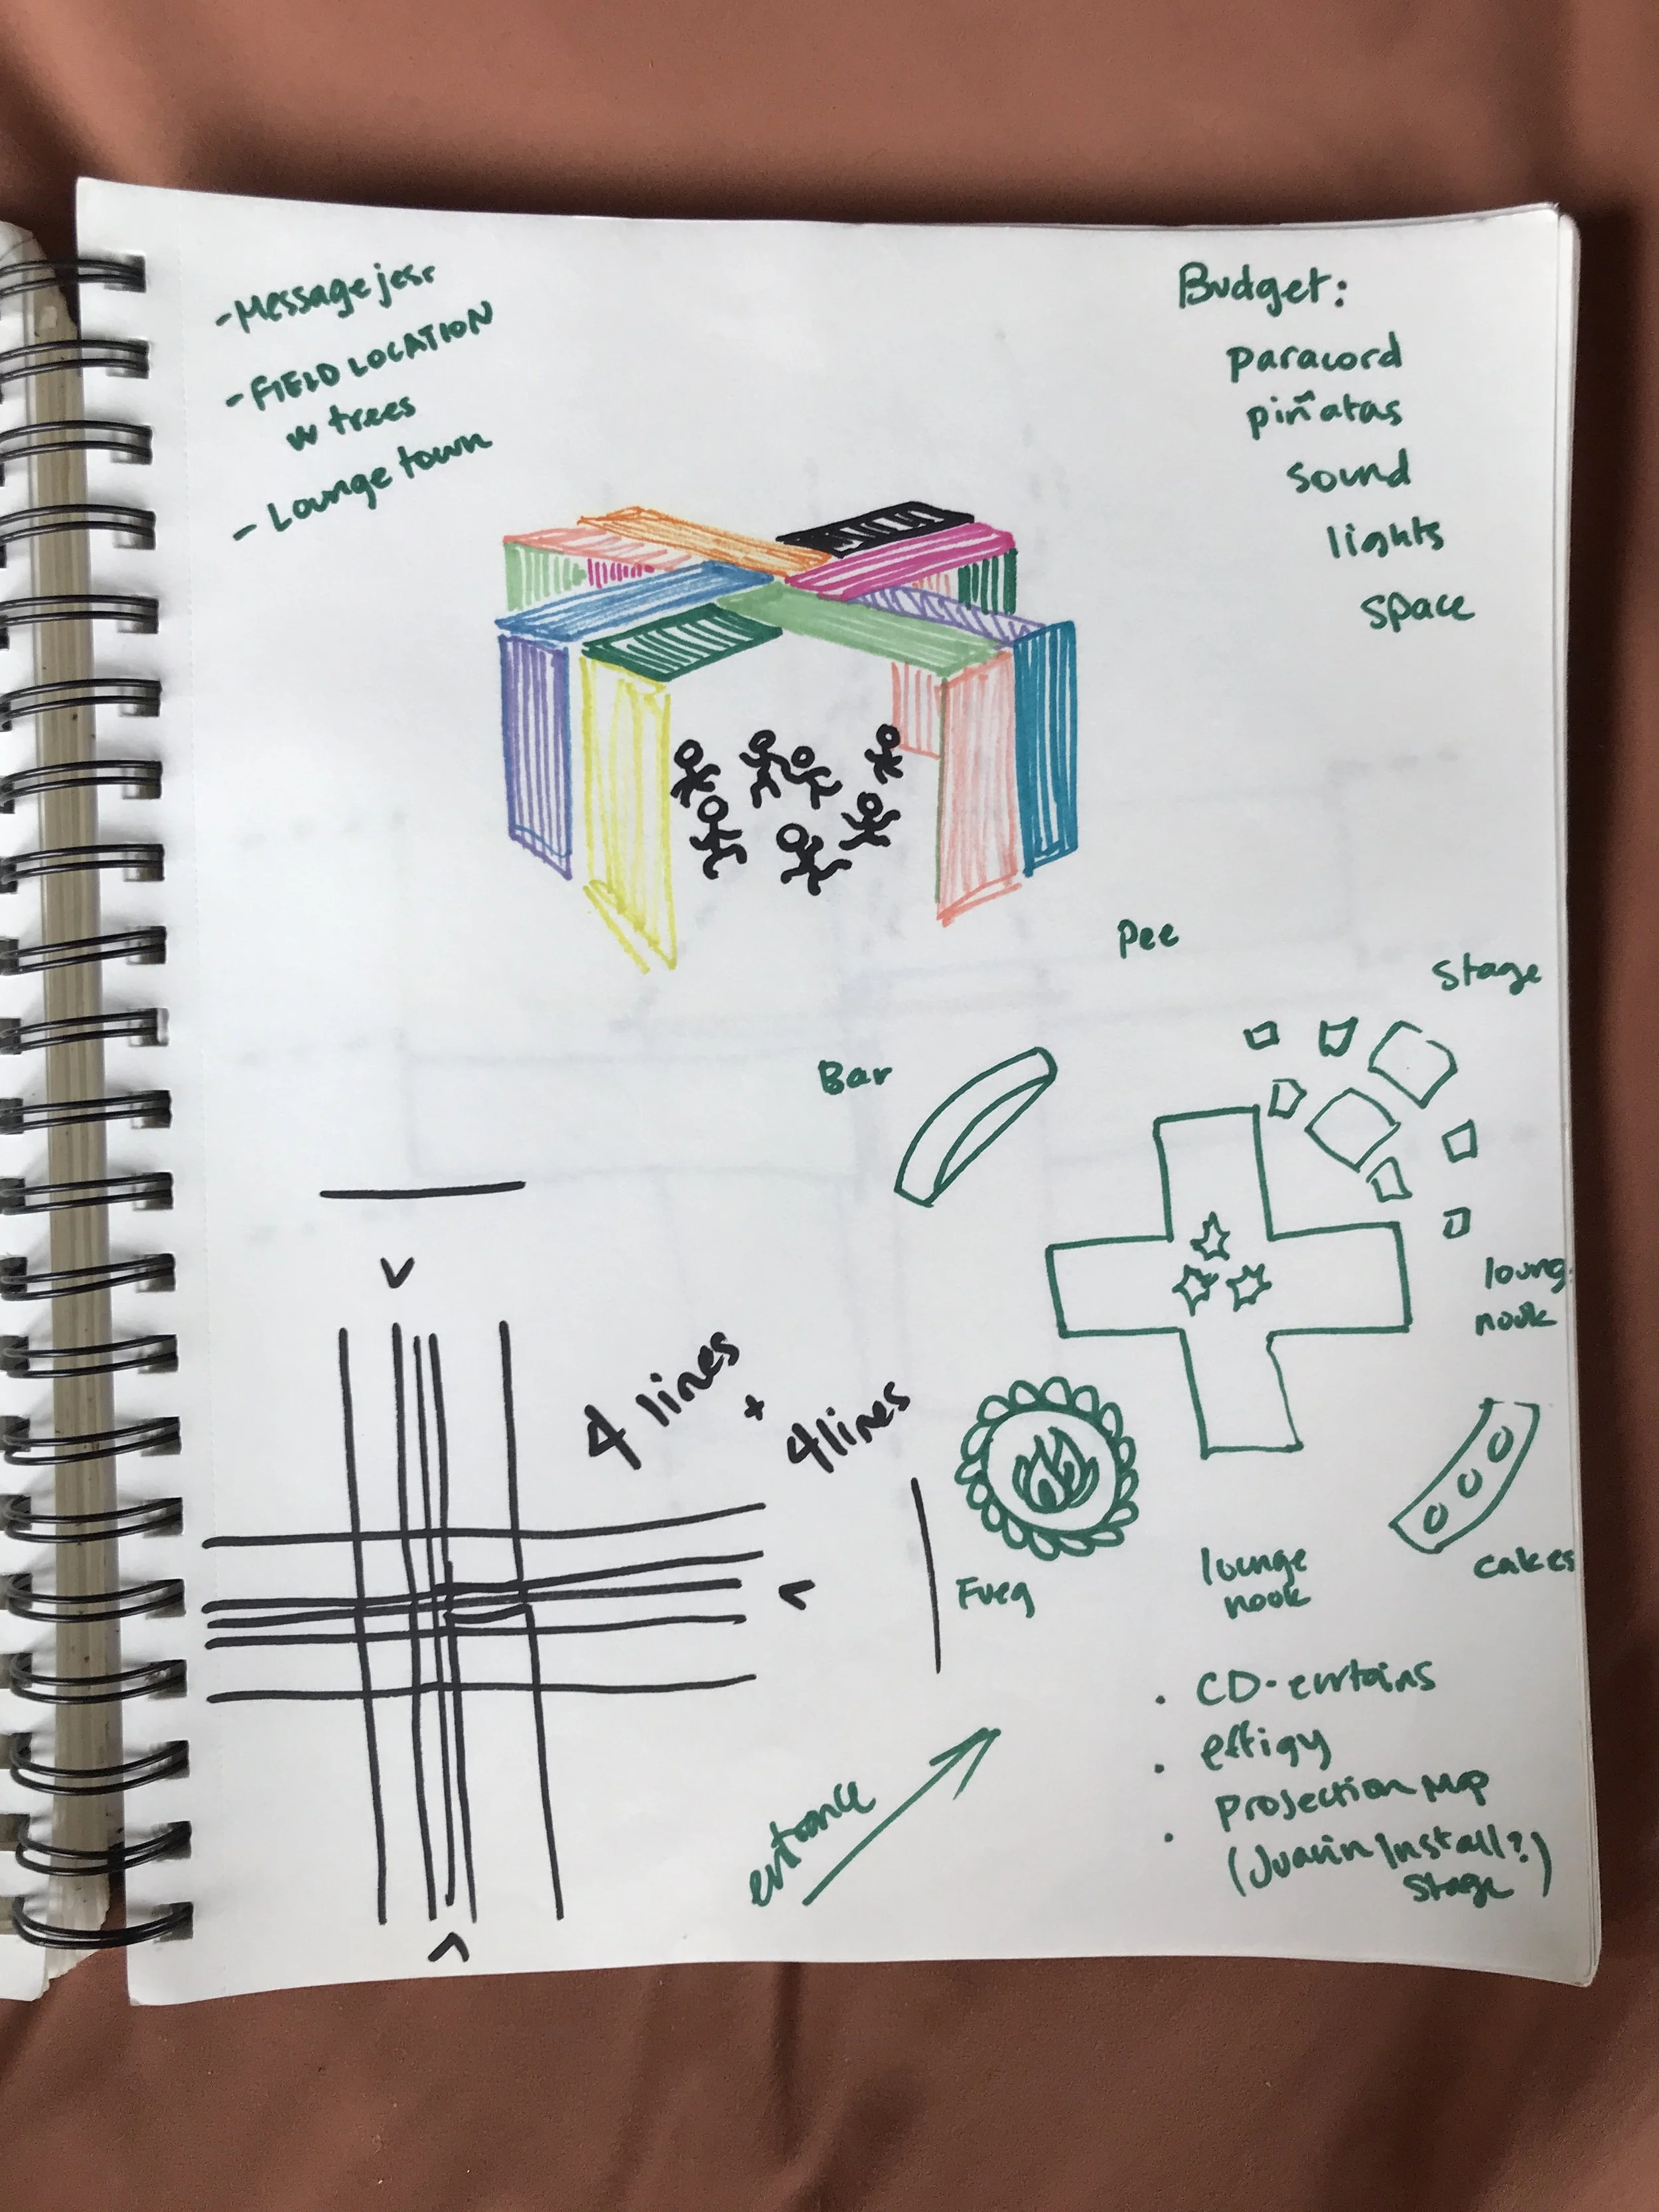 - Message jess
- FIELD LOCATION
w trees
- Lounge town
Budget:
paracord
piñatas
sound
lights
space
Pee
Stage
Bar
loung
nook
4 lines
+
4 lines
Fueg
lounge
nook
cakes
entrance
· CD-curtains
· effigy
· Projection Map
(Install?)
Stage